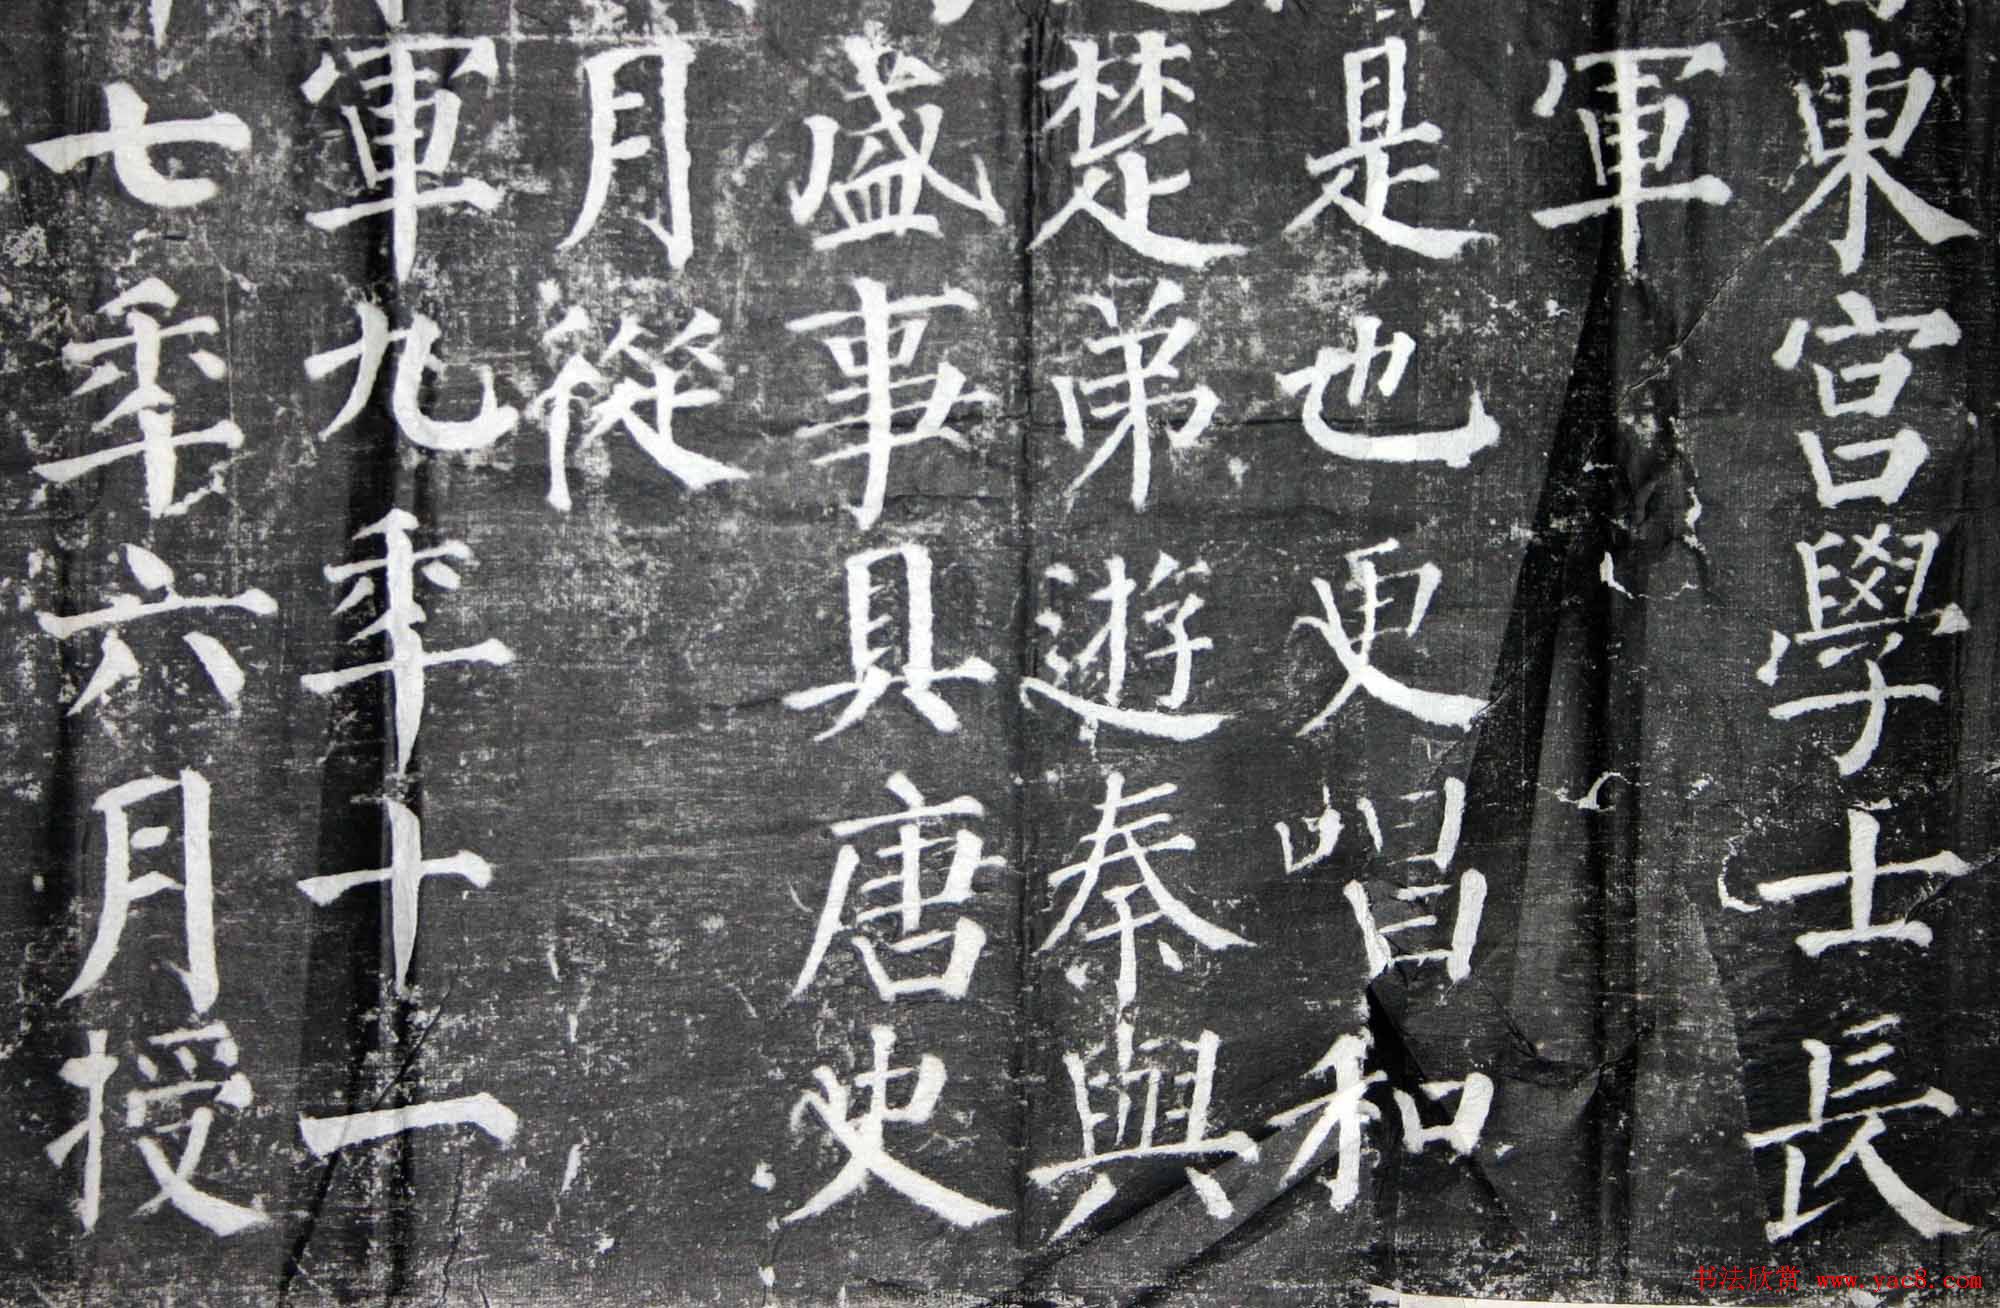 東宮學士長
軍
是也更唱和
楚弟遊秦與
盛事具唐史
月從
軍九年十一
七年六月授
书法欣赏 www.yac8.com